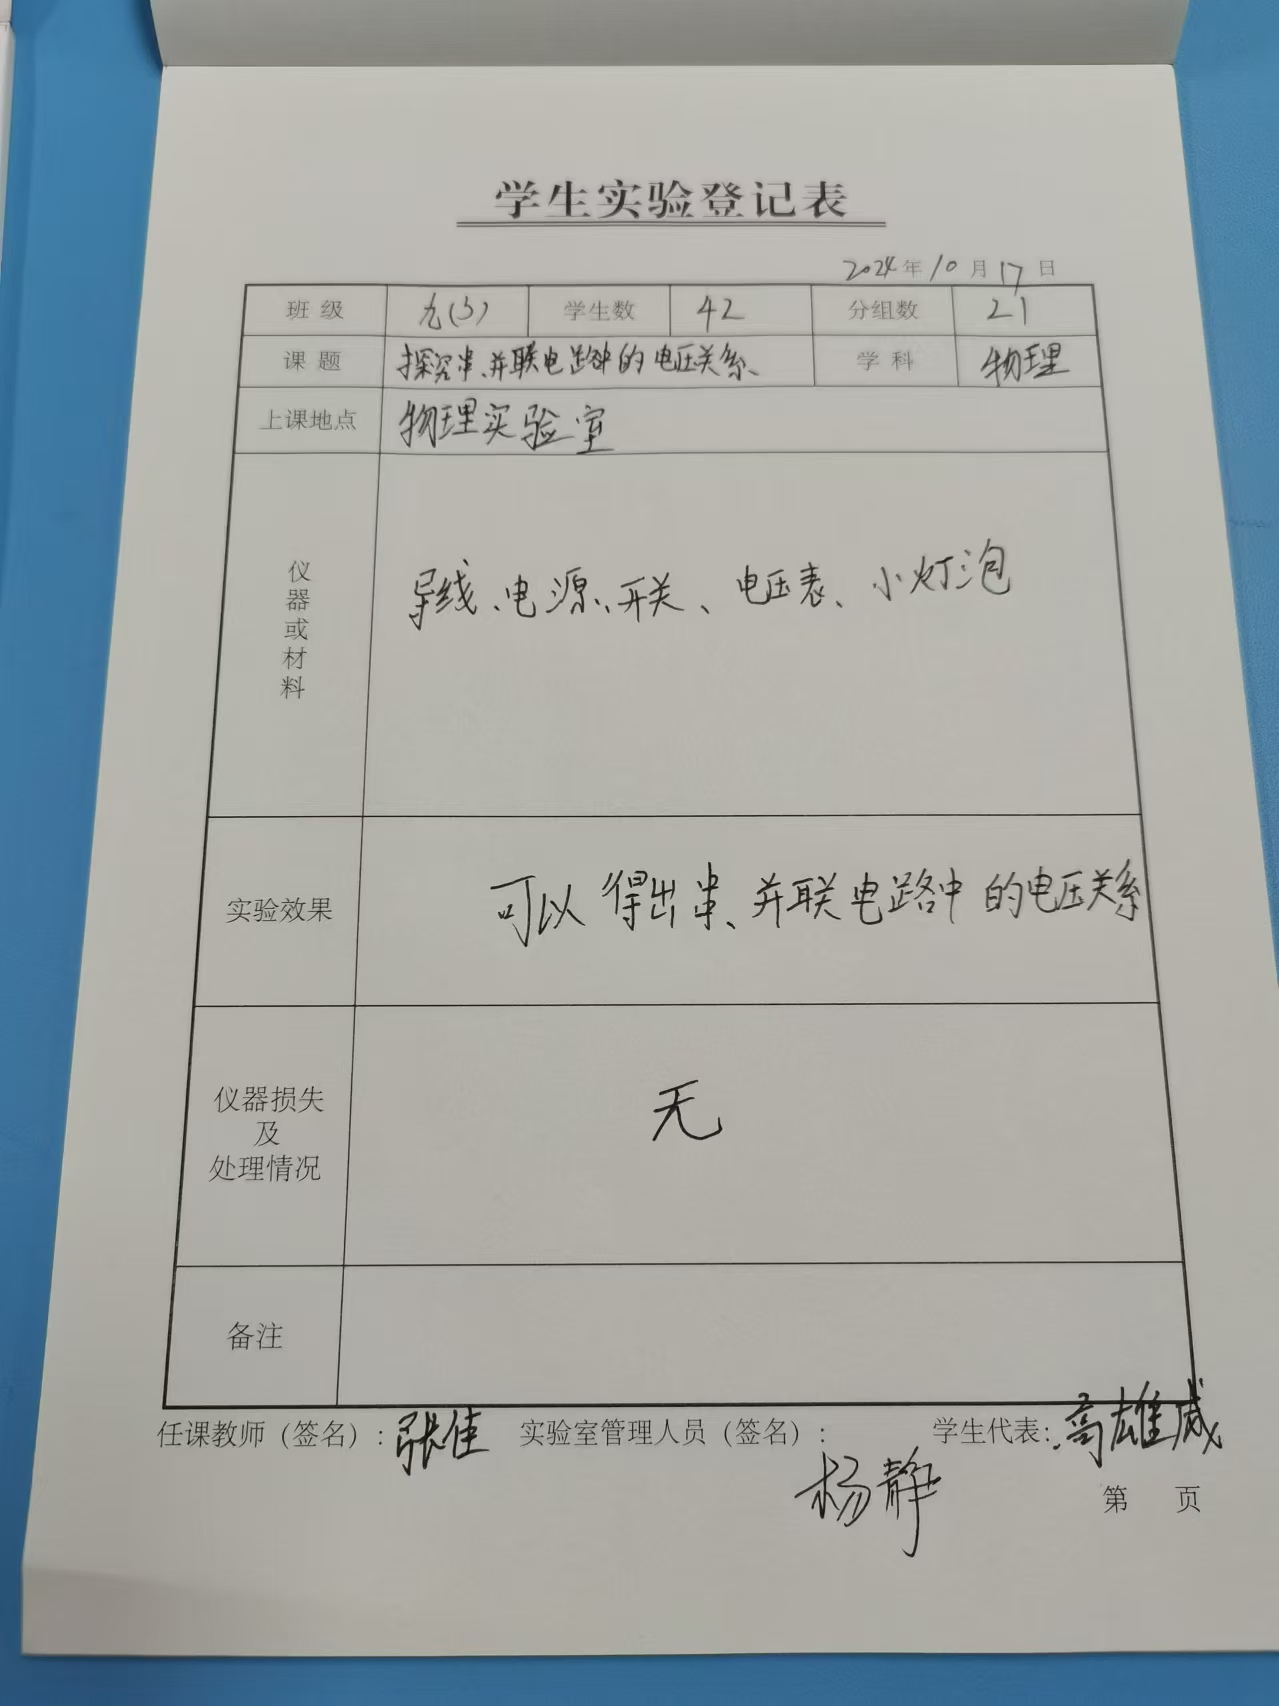 学生实验登记表
2024年10月17日
班级 九(3) 学生数 42 分组数 21
课题 探究串、并联电路中的电压关系、 学科 物理
上课地点 物理实验室
仪器或材料 导线、电源、开关、电压表、小灯泡
实验效果 可以得出串、并联电路中的电压关系
仪器损失
及 无
处理情况
备注
任课教师（签名）: 张佳 实验室管理人员（签名）: 杨静 学生代表: 高雄威
第 页